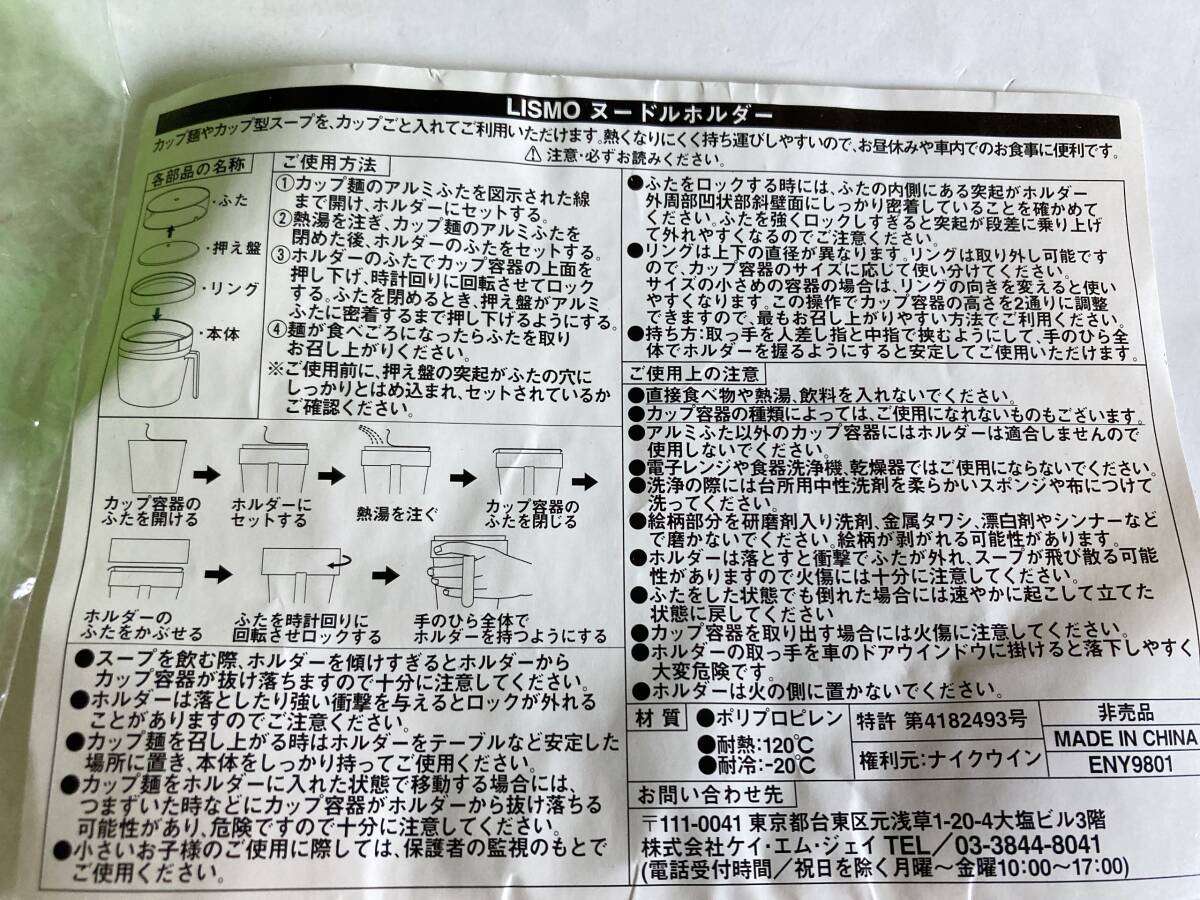 LISMO ヌードルホルダー
カップ麺やカップ型スープを、カップごと入れてご利用いただけます。熱くなりにくく持ち運びしやすいので、お昼休みや車内でのお食事に便利です。
⚠ 注意・必ずお読みください。
各部品の名称
・ふた
・押え盤
・リング
・本体
ご使用方法
①カップ麺のアルミふたを図示された線
まで開け、ホルダーにセットする。
②熱湯を注ぎ、カップ麺のアルミふたを
閉めた後、ホルダーのふたをセットする。
③ホルダーのふたでカップ容器の上面を
押し下げ、時計回りに回転させてロック
する。ふたを閉めるとき、押え盤がアルミ
ふたに密着するまで押し下げるようにする。
④麺が食べごろになったらふたを取り
お召し上がりください。
※ご使用前に、押え盤の突起がふたの穴に
しっかりとはめ込まれ、セットされているか
ご確認ください。
カップ容器の
ふたを開ける
ホルダーに
セットする
熱湯を注ぐ
カップ容器の
ふたを閉じる
ホルダーの
ふたをかぶせる
ふたを時計回りに
回転させロックする
手のひら全体で
ホルダーを持つようにする
●スープを飲む際、ホルダーを傾けすぎるとホルダーから
カップ容器が抜け落ちますので十分に注意してください。
●ホルダーは落としたり強い衝撃を与えるとロックが外れる
ことがありますのでご注意ください。
●カップ麺を召し上がる時はホルダーをテーブルなど安定した
場所に置き、本体をしっかり持ってご使用ください。
●カップ麺をホルダーに入れた状態で移動する場合には、
つまずいた時などにカップ容器がホルダーから抜け落ちる
可能性があり、危険ですので十分に注意してください。
●小さいお子様のご使用に際しては、保護者の監視のもとで
ご使用ください。
●ふたをロックする時には、ふたの内側にある突起がホルダー
外周部凹状部斜壁面にしっかり密着していることを確かめて
ください。ふたを強くロックしすぎると突起が段差に乗り上げ
て外れやすくなるのでご注意ください。
●リングは上下の直径が異なります。リングは取り外し可能です
ので、カップ容器のサイズに応じて使い分けてください。
サイズの小さめの容器の場合は、リングの向きを変えると使い
やすくなります。この操作でカップ容器の高さを2通りに調整
できますので、最もお召し上がりやすい方法でご利用ください。
●持ち方：取っ手を人差し指と中指で挟むようにして、手のひら全
体でホルダーを握るようにすると安定してご使用いただけます。
ご使用上の注意
●直接食べ物や熱湯、飲料を入れないでください。
●カップ容器の種類によっては、ご使用になれないものもございます。
●アルミふた以外のカップ容器にはホルダーは適合しませんので
使用しないでください。
●電子レンジや食器洗浄機、乾燥器ではご使用にならないでください。
●洗浄の際には台所用中性洗剤を柔らかいスポンジや布につけて
洗ってください。
●絵柄部分を研磨剤入り洗剤、金属タワシ、漂白剤やシンナーなど
で磨かないでください。絵柄が剥がれる可能性があります。
●ホルダーは落とすと衝撃でふたが外れ、スープが飛び散る可能
性がありますので火傷には十分に注意してください。
●ふたをした状態でも倒れた場合には速やかに起こして立てた
状態に戻してください
●カップ容器を取り出す場合には火傷に注意してください。
●ホルダーの取っ手を車のドアウインドウに掛けると落下しやすく
大変危険です。
●ホルダーは火の側に置かないでください。
材質
●ポリプロピレン
●耐熱:120℃
●耐冷:-20℃
特許 第4182493号
権利元:ナイクウイン
非売品
MADE IN CHINA
ENY9801
お問い合わせ先
〒111-0041 東京都台東区元浅草1-20-4大塩ビル3階
株式会社ケイ・エム・ジェイ TEL/03-3844-8041
(電話受付時間/祝日を除く月曜～金曜10:00～17:00)